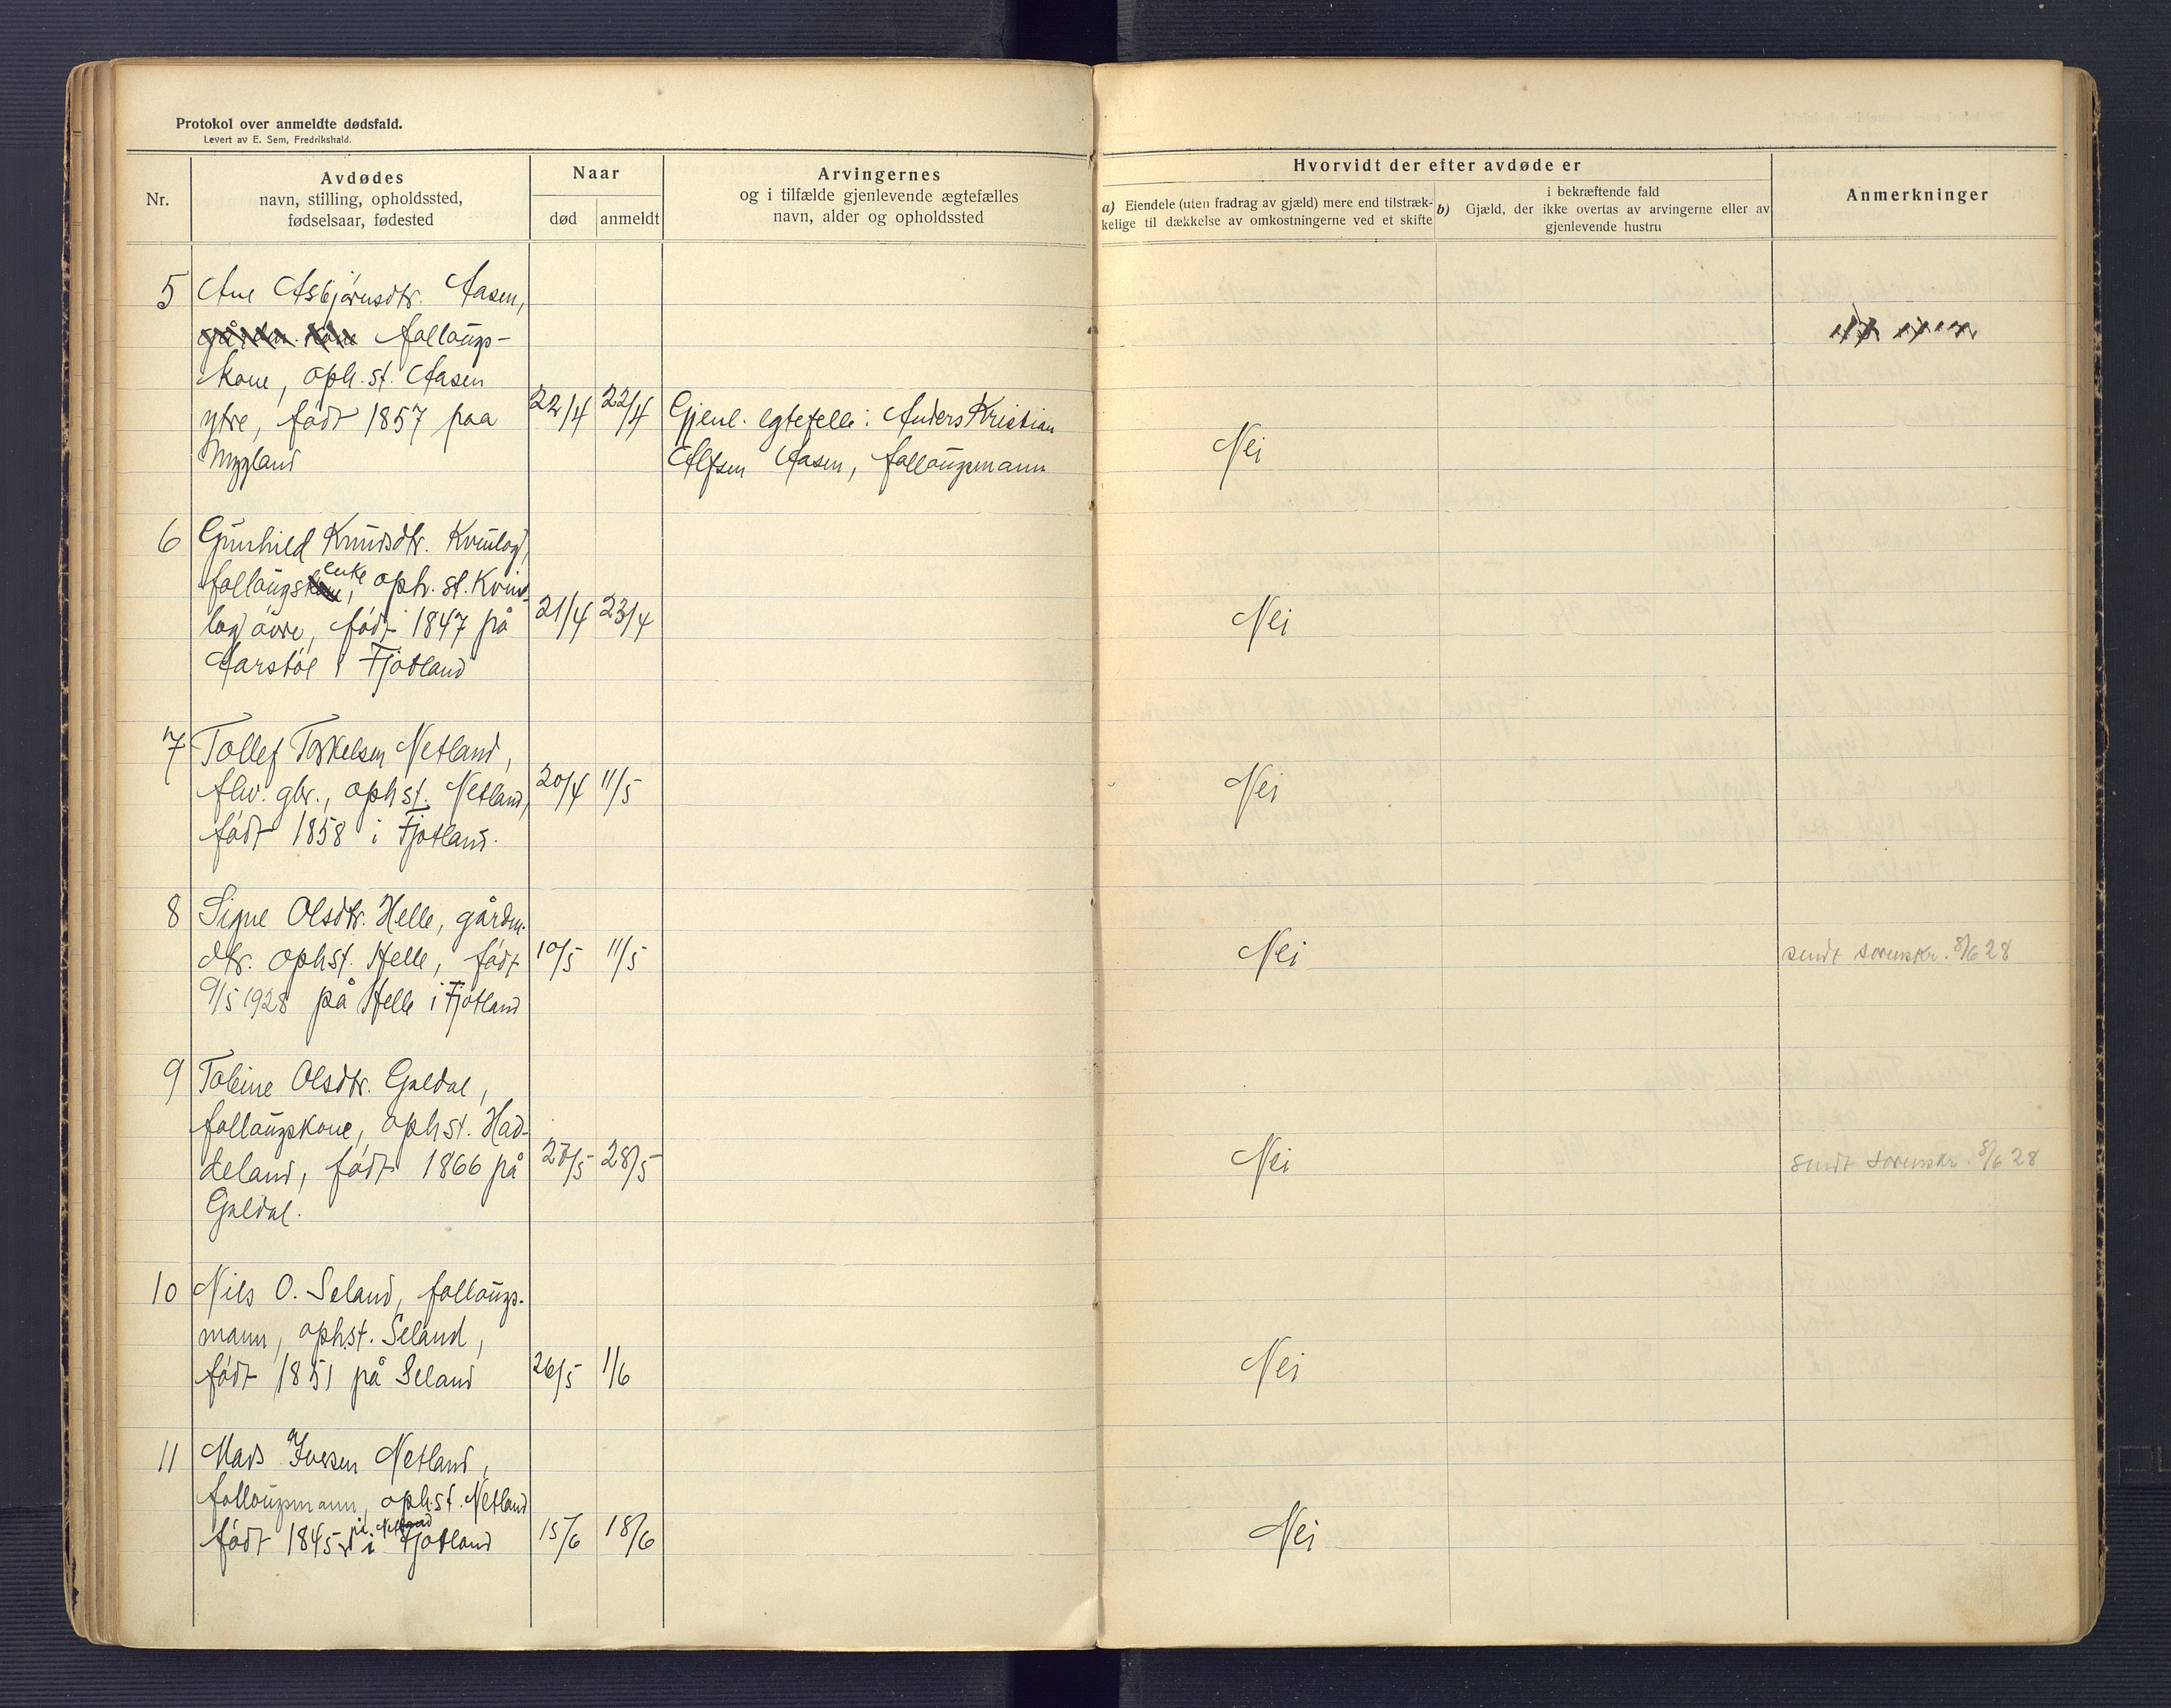 Protokol over anmeldte dødsfald.
Levert av E. Sem, Fredrikshald.
Nr.
Avdødes
navn, stilling, opholdssted,
fødselsaar, fødested
Naar
død
anmeldt
Arvingernes
og i tilfælde gjenlevende ægtefælles
navn, alder og opholdssted
Hvorvidt der efter avdøde er
a) Eiendele (uten fradrag av gjæld) mere end tilstræk-
kelige til dækkelse av omkostningerne ved et skifte
b)
i bekræftende fald
Gjæld, der ikke overtas av arvingerne eller av
gjenlevende hustru
Anmerkninger
5 Ane Asbjørnsdtr. Aasen,
follaugs-
kone, oph.st. Aasen
ytre, født 1857 paa
Mygland
22/4 22/4
Gjenl. egtefelle: Anders Kristian
Alfsen Aasen, follaugsmann
Nei
6 Gunhild Knudsdtr. Kvinlog,
follaugsenke, oph. st. Kvin-
log øvre, født 1847 på
Aarstøl i Fjotland
21/4 23/4
Nei
7 Tollef Torkelsen Netland,
fhv. gbr., ophst. Netland,
født 1858 i Fjotland.
20/4 11/5
Nei
8 Signe Olsdtr. Helle, gårdm.
dtr. ophst. Helle, født
9/5 1928 på Helle i Fjotland
10/5 11/5
Nei
sendt sorenskr. 8/6 28
9 Tobine Olsdtr. Galdal,
follaugskone, ophst. Had-
deland, født 1866 på
Galdal.
27/5 28/5
Nei
sendt sorenskr. 8/6 28
10 Nils O. Seland, follaugs-
mann, ophst. Seland,
født 1851 på Seland
26/5 1/6
Nei
11 Mads Iversen Netland,
follaugsmann, oph.st. Netland
født 1845 på Netland i Fjotland
15/6 18/6
Nei